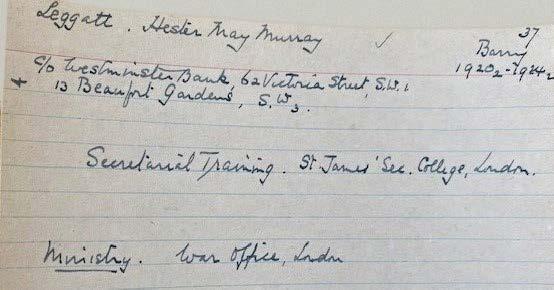 37
Leggatt. Hester May Murray ✓ Barry
c/o Westminster Bank, 62 Victoria Street, S.W.1 1920₂-1924₂
+ 13 Beaufort Gardens, S.W.3.
Secretarial Training. St. James' Sec. College, London.
Ministry. War Office, London